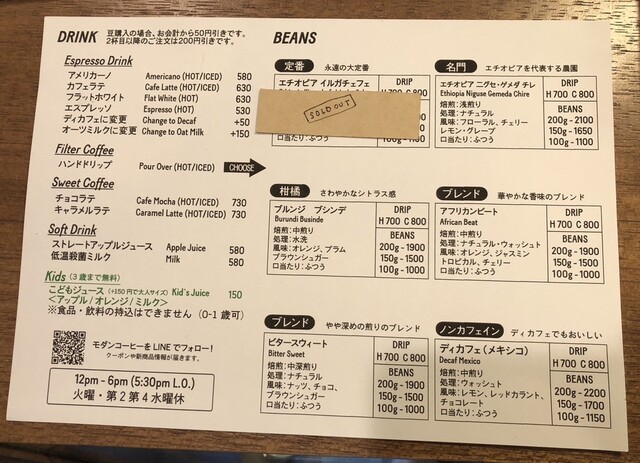 DRINK
豆購入の場合、お会計から50円引きです。
2杯目以降のご注文は200円引きです。
Espresso Drink
アメリカーノ Americano (HOT/ICED) 580
カフェラテ Cafe Latte (HOT/ICED) 630
フラットホワイト Flat White (HOT) 630
エスプレッソ Espresso (HOT) 530
ディカフェに変更 Change to Decaf +50
オーツミルクに変更 Change to Oat Milk +150
Filter Coffee
ハンドドリップ Pour Over (HOT/ICED) CHOOSE
Sweet Coffee
チョコラテ Cafe Mocha (HOT/ICED) 730
キャラメルラテ Caramel Latte (HOT/ICED) 730
Soft Drink
ストレートアップルジュース Apple Juice 580
低温殺菌ミルク Milk 580
Kids (3歳まで無料)
こどもジュース (+150円で大人サイズ) Kid's Juice 150
<アップル/オレンジ/ミルク>
※食品・飲料の持込はできません (0-1歳可)
モダンコーヒーをLINEでフォロー!
クーポンや新商品情報が届きます。
12pm - 6pm (5:30pm L.O.)
火曜・第2第4水曜休
BEANS
定番 永遠の大定番
エチオピア イルガチェフェ
DRIP
SOLD OUT
口当たり:ふつう
名門 エチオピアを代表する農園
エチオピア ニグセ・ゲメダ チレ
Ethiopia Niguse Gemeda Chire
焙煎:浅煎り
処理:ナチュラル
風味:フローラル、チェリー
レモン・グレープ
口当たり:ふつう
DRIP
H 700 C 800
BEANS
200g - 2100
150g - 1650
100g - 1100
柑橘 さわやかなシトラス感
ブルンジ ブシンデ
Burundi Businde
焙煎:中煎り
処理:水洗
風味:オレンジ、プラム
ブラウンシュガー
口当たり:ふつう
DRIP
H 700 C 800
BEANS
200g - 1900
150g - 1500
100g - 1000
ブレンド 華やかな香味のブレンド
アフリカンビート
African Beat
焙煎:中煎り
処理:ナチュラル・ウォッシュト
風味:オレンジ、ジャスミン
トロピカル、チェリー
口当たり:ふつう
DRIP
H 700 C 800
BEANS
200g - 1900
150g - 1500
100g - 1000
ブレンド やや深めの煎りのブレンド
ビタースウィート
Bitter Sweet
焙煎:中深煎り
処理:ナチュラル
風味:ナッツ、チョコ、
ブラウンシュガー
口当たり:ふつう
DRIP
H 700 C 800
BEANS
200g - 1900
150g - 1500
100g - 1000
ノンカフェイン ディカフェでもおいしい
ディカフェ(メキシコ)
Decaf Mexico
焙煎:中煎り
処理:ウォッシュト
風味:レモン、レッドカラント、
チョコレート
口当たり:ふつう
DRIP
H 700 C 800
BEANS
200g - 2200
150g - 1700
100g - 1150